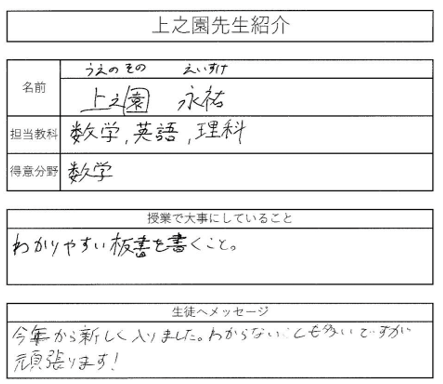 上之園先生紹介
うえのその えいすけ
名前
上之園 永祐
担当教科 数学,英語,理科
得意分野 数学
授業で大事にしていること
わかりやすい板書を書くこと。
生徒へメッセージ
今年から新しく入りました。わからないことも多いですが
頑張ります!